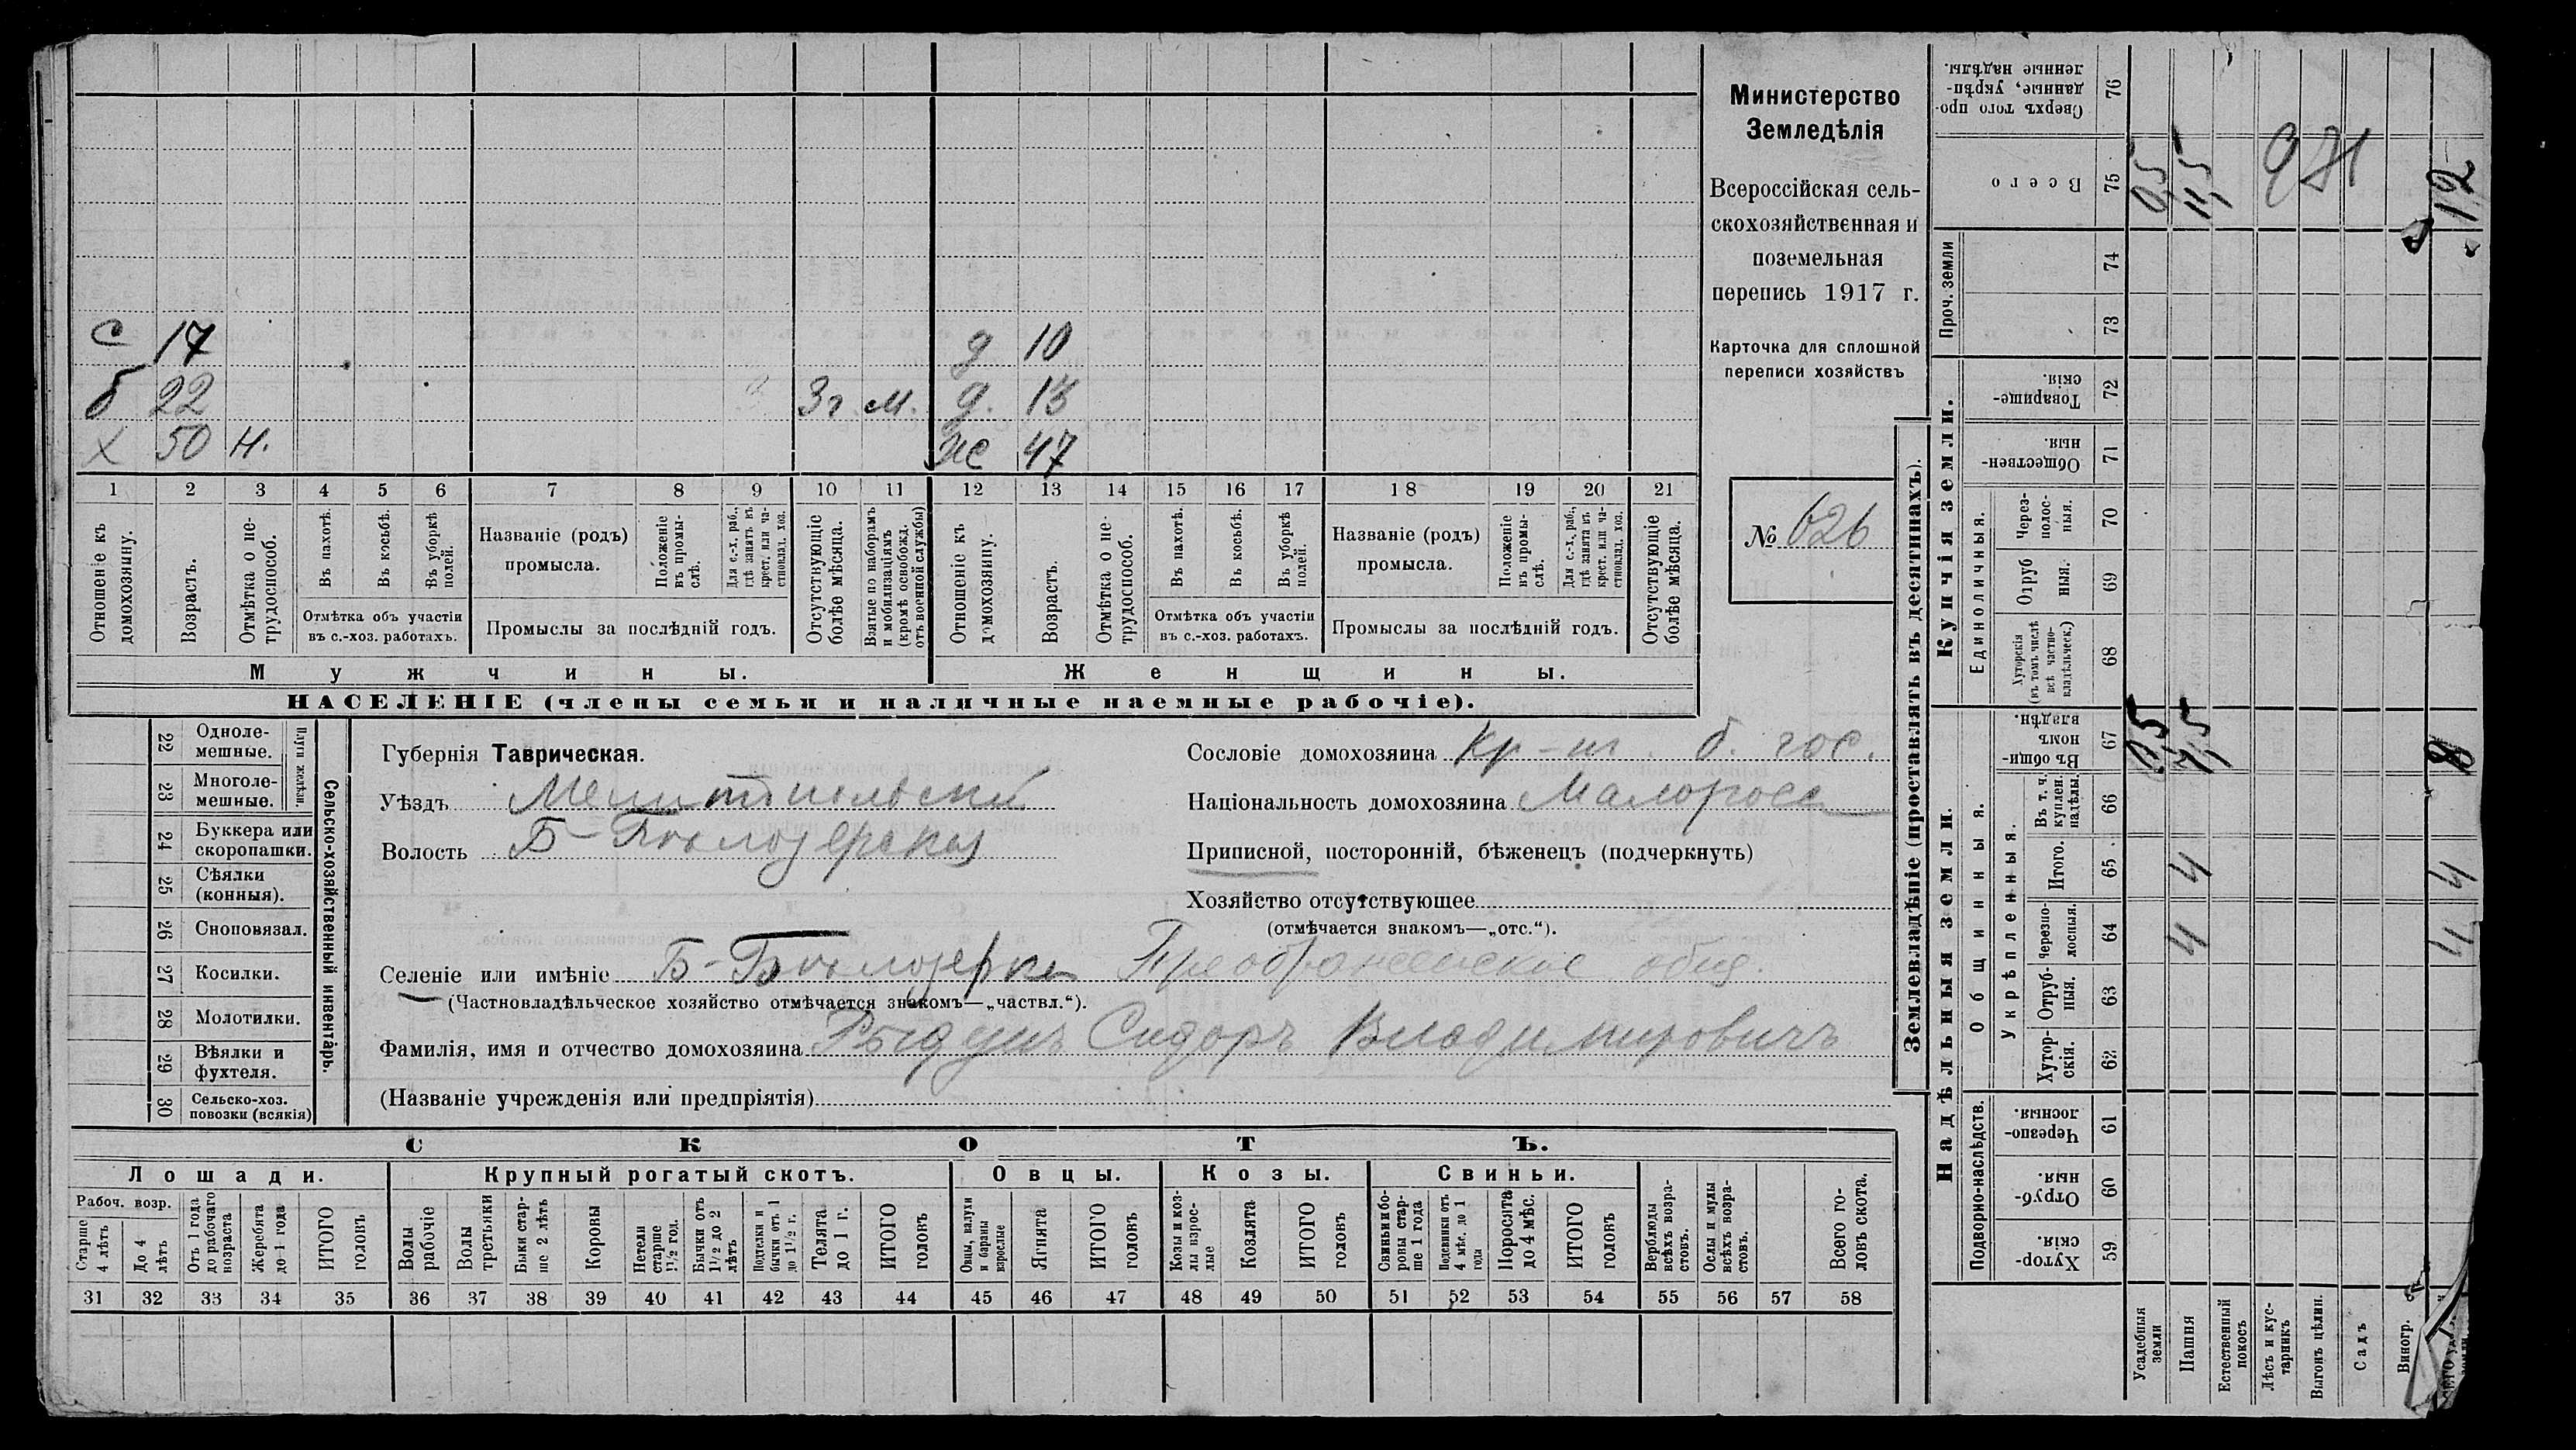 С 17 д 10
б 22 3 г. м. д. 13
х 50 н. же 47
1 2 3 4 5 6 7 8 9 10 11 12 13 14 15 16 17 18 19 20 21
Отношеніе къ домохозяину.
Возрастъ.
Отмѣтка о нетрудоспособ.
Въ пахотѣ.
Въ косьбѣ.
Въ уборкѣ полей.
Отмѣтка объ участіи
въ с.-хоз. работахъ.
Названіе (родъ)
промысла.
Положеніе въ промыслѣ.
Для с.-х. раб., гдѣ занятъ въ крест. или частновлад. хоз.
Промыслы за послѣдній годъ.
Отсутствующіе болѣе мѣсяца.
Взятые по наборамъ и мобилизаціямъ (кромѣ освобожд. отъ военной службы)
Отношеніе къ домохозяину.
Возрастъ.
Отмѣтка о нетрудоспособ.
Въ пахотѣ.
Въ косьбѣ.
Въ уборкѣ полей.
Отмѣтка объ участіи
въ с.-хоз. работахъ.
Названіе (родъ)
промысла.
Положеніе въ промыслѣ.
Для с.-х. раб., гдѣ занята въ крест. или частновлад. хоз.
Промыслы за послѣдній годъ.
Отсутствующіе болѣе мѣсяца.
Мужчины. Женщины.
НАСЕЛЕНІЕ (члены семьи и наличные наемные рабочіе).
Министерство
Земледѣлія
Всероссійская сель-
скохозяйственная и
поземельная
перепись 1917 г.
Карточка для сплошной
переписи хозяйствъ
№ 626
22 Одноле-
мешные.
23 Многоле-
мешные.
Плуги желѣзн.
24 Буккера или
скоропашки.
25 Сѣялки
(конныя).
26 Сноповязал.
27 Косилки.
28 Молотилки.
29 Вѣялки и
фухтеля.
30 Сельско-хоз.
повозки (всякія)
Сельско-хозяйственный инвентарь.
Губернія Таврическая.
Уѣздъ Мелитопольскій
Волость Б-Бѣлозерская
Селеніе или имѣніе Б-Бѣлозерка Преображенское общ.
(Частновладѣльческое хозяйство отмѣчается знакомъ—„частвл.“).
Фамилія, имя и отчество домохозяина Сидоръ Владимировичъ
(Названіе учрежденія или предпріятія)
Сословіе домохозяина Кр-нъ б. гос.
Національность домохозяина Малоросс
Приписной, посторонній, бѣженецъ (подчеркнуть)
Хозяйство отсутствующее
(отмѣчается знакомъ—„отс.“).
СКОТЪ.
Лошади. Крупный рогатый скотъ. Овцы. Козы. Свиньи.
Рабоч. возр.
Старше 4 лѣтъ
До 4 лѣтъ
Отъ 1 года до рабочаго возраста
Жеребята до 1 года
ИТОГО головъ
Волы рабочіе
Волы третьяки
Быки старше 2 лѣтъ
Коровы
Нетели старше 1½ год.
Бычки отъ 1½ до 2 лѣтъ
Подтелки и бычки отъ 1 до 1½ г.
Телята до 1 г.
ИТОГО головъ
Овцы, валухи и бараны взрослые
Ягнята
ИТОГО головъ
Козы и козлы взрослые
Козлята
ИТОГО головъ
Свиньи и боровы старше 1 года
Подсвинки отъ 4 мѣс. до 1 года
Поросята до 4 мѣс.
ИТОГО головъ
Верблюды всѣхъ возрастовъ.
Ослы и мулы всѣхъ возрастовъ.
Всего головъ скота.
31 32 33 34 35 36 37 38 39 40 41 42 43 44 45 46 47 48 49 50 51 52 53 54 55 56 57 58
Землевладѣніе (проставлять въ десятинахъ).
Купчія земли.
Надѣльныя земли.
Сверхъ того проданные, укрѣпленные надѣлы. 76
Всего 75
Проч. земли
74
73
Товарищескія. 72
Общественныя. 71
Единоличныя.
Черезполосныя. 70
Отрубныя. 69
Хуторскія (въ томъ числѣ всѣ частновладѣльческ.) 68
Общинныя.
Въ общинномъ владѣн. 67
Укрѣпленныя.
Въ т. ч. куплен. надѣлы. 66
Итого. 65
Черезполосныя. 64
Отрубныя. 63
Хуторскія. 62
Подворно-наслѣдств.
Черезполосныя. 61
Отрубныя. 60
Хуторскія. 59
Усадебныя земли
Пашня
Естественный покосъ
Лѣсъ и кустарникъ
Выгонъ цѣлин.
Садъ
Виногр.
0,5
11,5
12
0,5
7,5
8
4
4
4
4